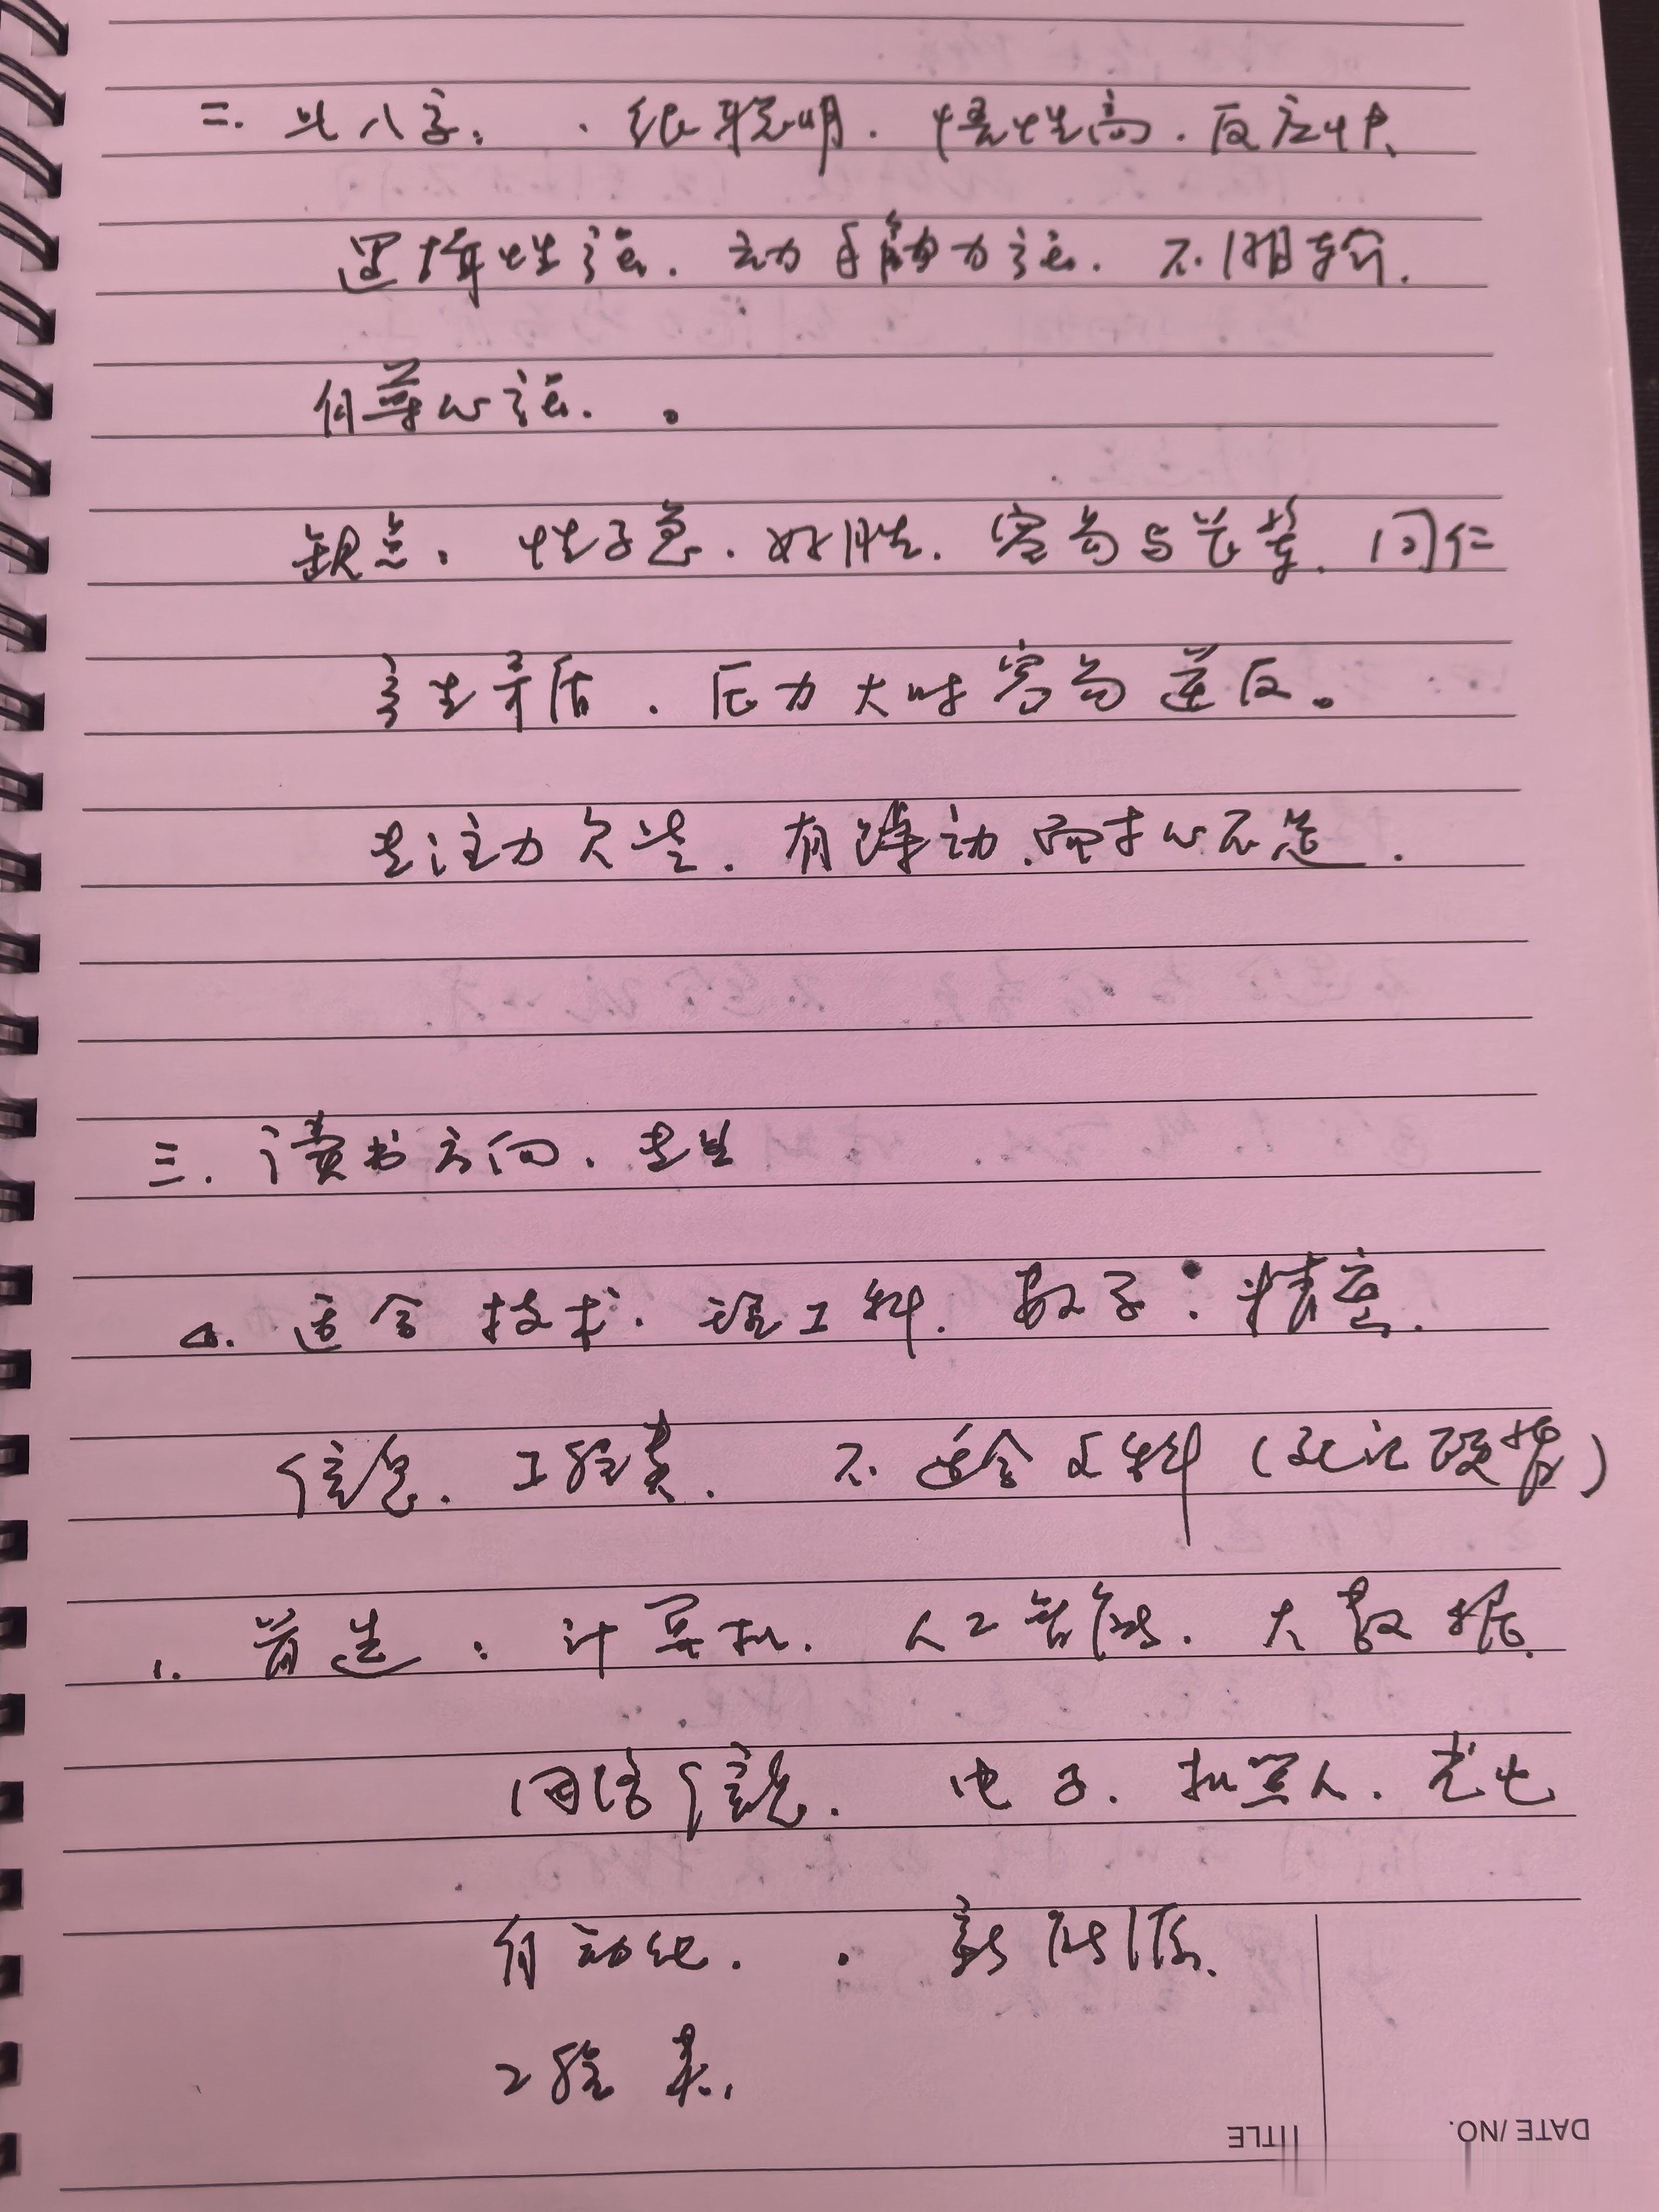 二. 此八字: . 绝聪明. 悟性高. 反应快.
逻辑性强. 动手能力强. 不服输.
自尊心强. 。
缺点. 性子急. 好胜. 容易与长辈. 同仁
产生矛盾. 压力大时容易逆反。
专注力欠些. 有浮动. 耐心不总.
三. 读书方向. 专业
适合技术. 理工科. 数学: 精密.
信息. 工程类. 不适合文科(死记硬背)
1. 首选: 计算机. 人工智能. 大数据.
网络信息. 电子. 机器人. 光电
自动化. . 新能源.
工程类.
TITLE
DATE/NO.